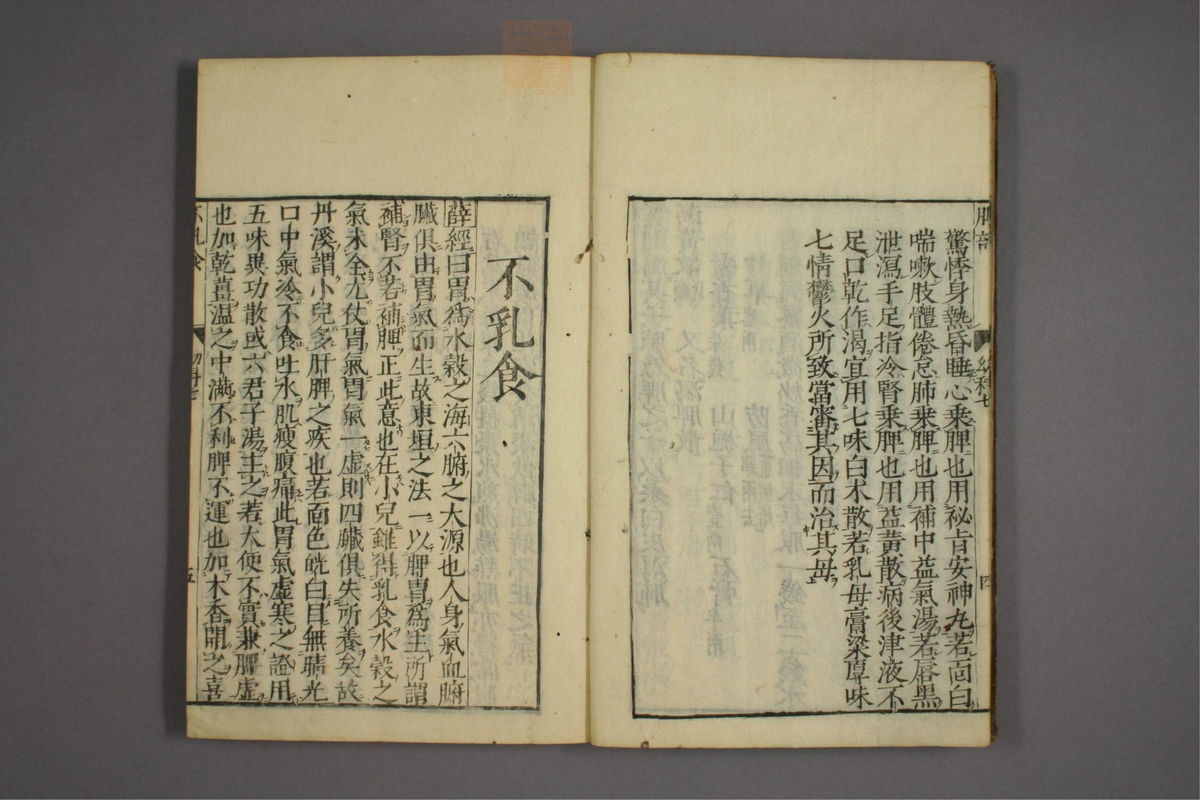 驚悸身熱昏睡心乗脾也用秘旨安神丸若面白
喘嗽肢體倦怠肺乗脾也用補中益氣湯若唇黑
泄瀉手足指冷腎乗脾也用益黄散病後津液不
足口乾作渴宜用七味白术散若乳母膏梁厚味
七情鬱火所致當審其因而治其母
四
不乳食
薛經曰胃爲水穀之海六腑之大源也人身氣血腑
臟俱由胃氣而生故東垣之法一以脾胃爲主所謂
補腎不若補脾正此意也在小兒雖得乳食水穀之
氣未全尤仗胃氣胃氣一虚則四臟俱失所養矣故
丹溪謂小兒多肝脾之疾也若面色㿠白目無睛光
口中氣冷不食吐水肌瘦腹痛此胃氣虚寒之證用
五味異功散或六君子湯主之若大便不實兼脾虚
也加乾薑温之中滿不利脾不運也加木香開之喜
五